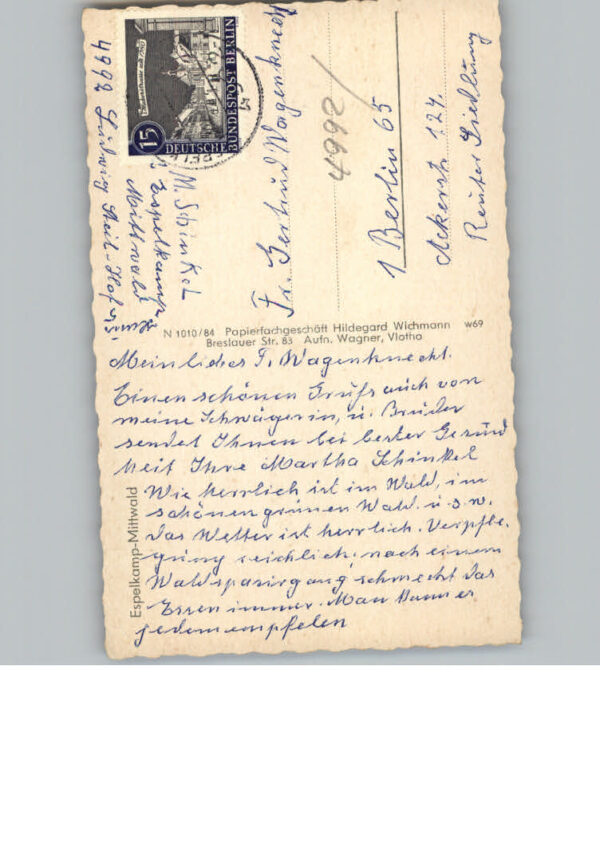 15
DEUTSCHE
BUNDESPOST BERLIN
M. Schinkel
Espelkamp
Mittwald
4992 Ludwig Steil-Hof
Fr. Gertrud Wagenknecht
4992/
1 Berlin 65
Ackerstr. 124.
Reuter Siedlung
N 1010/84 Papierfachgeschäft Hildegard Wichmann w69
Breslauer Str. 83 Aufn. Wagner, Vlotho
Espelkamp-Mittwald
Mein liebes F. Wagenknecht.
Einen schönen Gruß auch von
meine Schwägerin, u. Bruder
sendet Ihnen bei bester Gesund
heit Ihre Martha Schinkel
Wie herrlich ist im Wald, im
schönen grünen Wald u.s.w.
das Wetter ist herrlich. Verpfle-
gung reichlich, nach einem
Waldspasirgang schmeckt das
Essen immer. Man kann es
jedem empfelen